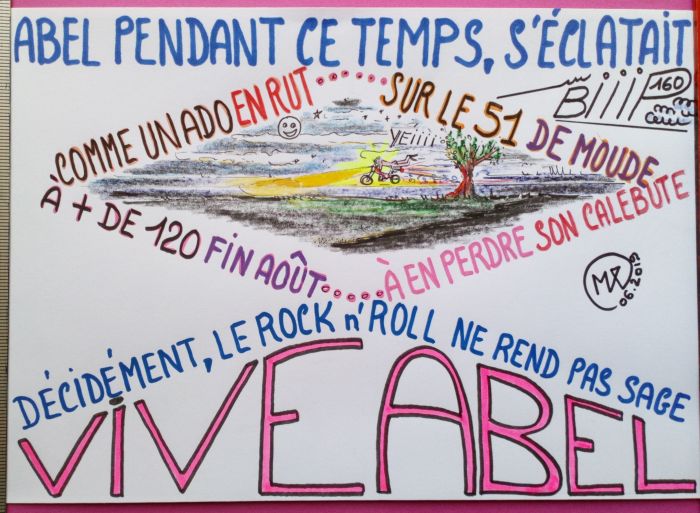 ABEL PENDANT CE TEMPS, S'ÉCLATAIT
COMME UN ADO EN RUT...... SUR LE 51 DE MOUDE
BIIIF 160
YEIIII
À + DE 120 FIN AOÛT..... À EN PERDRE SON CALEBUTE
06.2019
DÉCIDÉMENT, LE ROCK n' ROLL NE REND PAS SAGE
VIVE ABEL